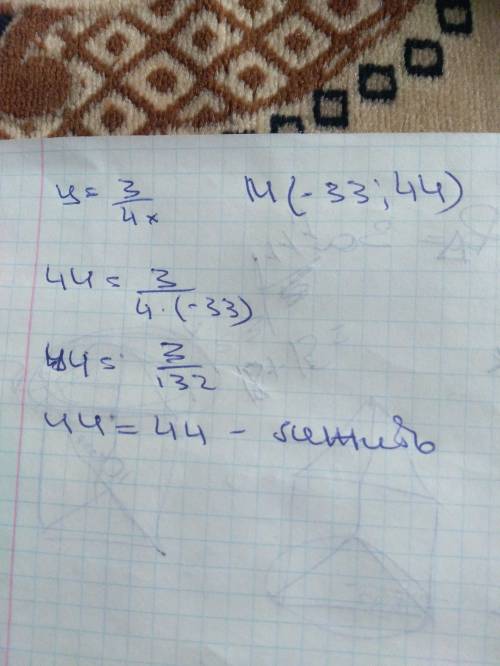 y = 3/4x M(-33; 44)
44 = 3/4·(-33)
44 = 3/132
44 = 44 - лежить